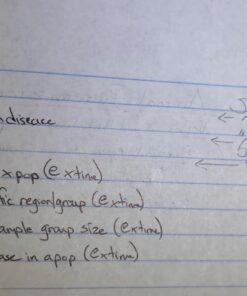 diseace
x pop (e xtime)
fic region/group (extime)
ample group size (extime)
ase in a pop (extime)